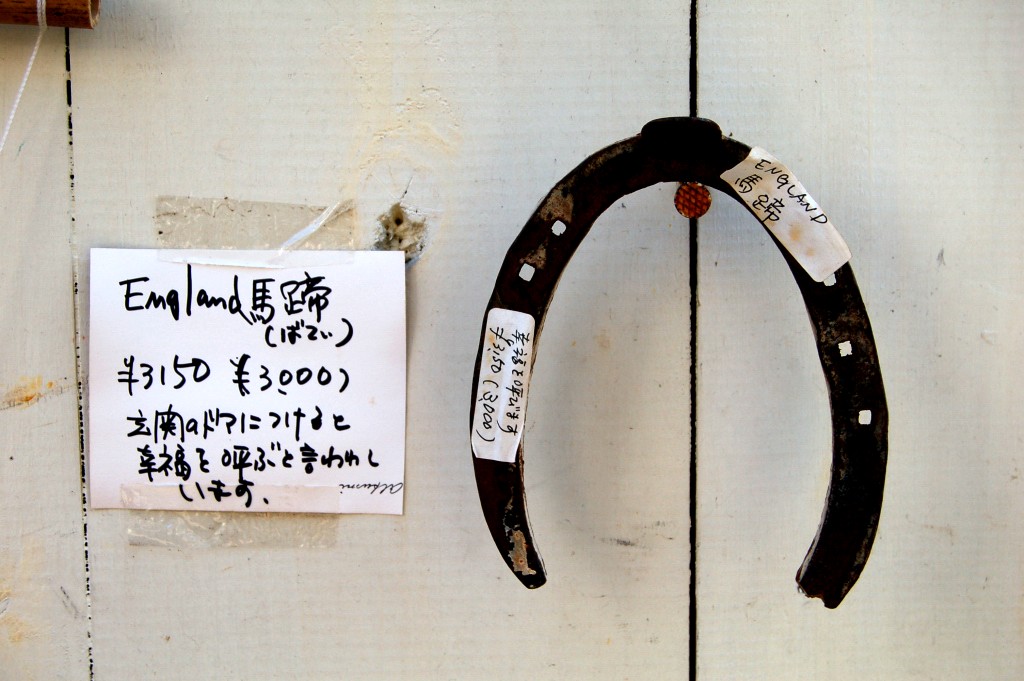 England馬蹄
(ばてい)
¥3150 (¥3,000)
玄関のドアにつけると
幸福を呼ぶと言われて
います。
ENGLAND
馬蹄
幸福を呼びます
¥3,150 (3,000)